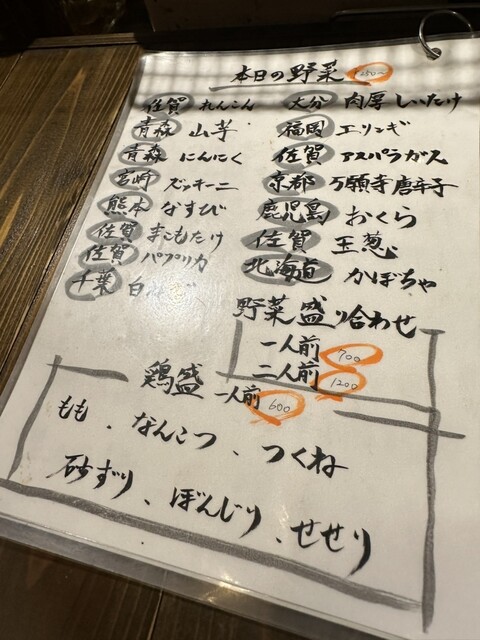 本日の野菜 250〜
佐賀 れんこん
青森 山芋
青森 にんにく
宮崎 ズッキーニ
熊本 なすび
佐賀 まこもたけ
佐賀 パプリカ
千葉 白
大分 肉厚しいたけ
福岡 エリンギ
佐賀 アスパラガス
京都 万願寺唐辛子
鹿児島 おくら
佐賀 玉葱
北海道 かぼちゃ
野菜盛り合わせ
一人前 700
二人前 1200
鶏盛 一人前 600
もも、なんこつ、つくね
砂ずり、ぼんじり、せせり